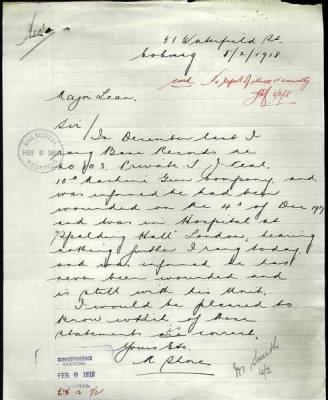 51 Waterfield St.
Coburg 5/2/1918
card No report of illness or casualty
6/2/18
Major Lean.
Sir/ In December last I
rang Base Records re
No 403. Private T. J. Keal.
10th Machine Gun Company and
was informed he had been
wounded on the 4th of Dec 1917
and was in Hospital at
"Spalding Hall" London, hearing
nothing further I rang today
and was informed he has
never been wounded and
is still with his Unit.
I would be pleased to
know which of these
statements is correct.
Yours Etc.
R Shore
BASE RECORDS
FEB 6 1918
CORRESPONDENCE
SECTION.
FEB 6 1918
Mr Smith
6/2